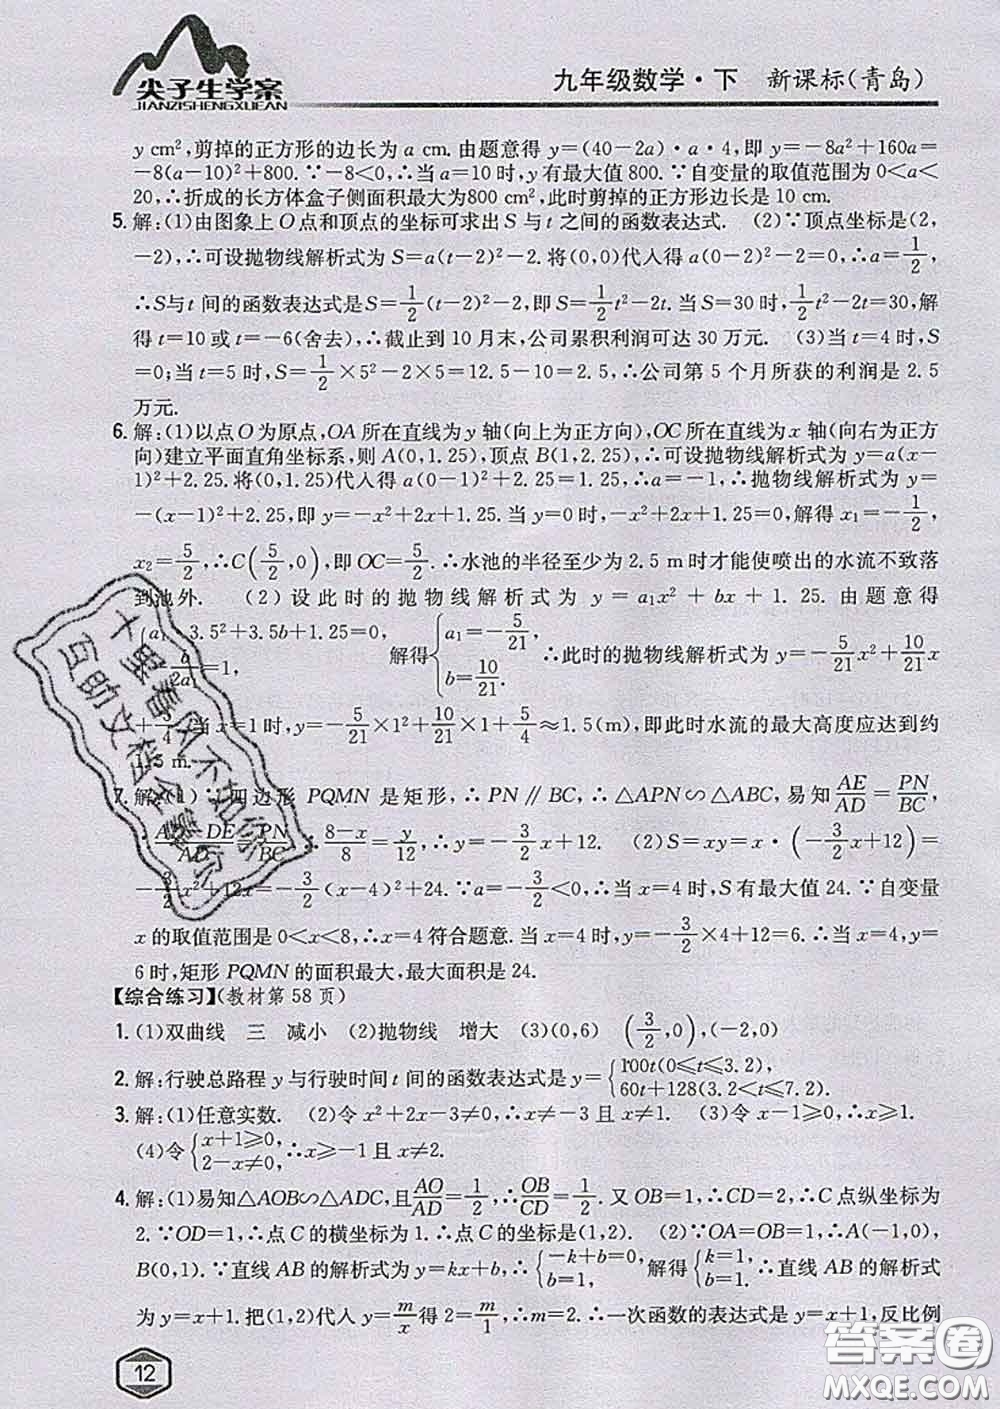 尖子生学案
JIANZISHENGXUEAN
九年级数学·下 新课标(青岛)
y cm²,剪掉的正方形的边长为 a cm. 由题意得 y=(40-2a)·a·4,即 y=-8a²+160a=
-8(a-10)²+800.∵-8<0,∴当 a=10 时,y 有最大值 800.∵自变量的取值范围为 0<a<
20,∴折成的长方体盒子侧面积最大为800 cm²,此时剪掉的正方形边长是 10 cm.
5. 解:(1)由图象上 O 点和顶点的坐标可求出 S 与 t 之间的函数表达式. (2)∵顶点坐标是(2,
-2),∴可设抛物线解析式为 S=a(t-2)²-2. 将(0,0)代入得 a(0-2)²-2=0,∴a=1/2,
∴S与 t 间的函数表达式是S=1/2(t-2)²-2,即 S=1/2t²-2t. 当 S=30 时,1/2t²-2t=30,解
得 t=10 或 t=-6(舍去),∴截止到 10 月末,公司累积利润可达 30 万元. (3)当 t=4 时,S
=0;当 t=5 时,S=1/2×5²-2×5=12.5-10=2.5,∴公司第 5 个月所获的利润是 2.5
万元.
6. 解:(1)以点O 为原点,OA 所在直线为y 轴(向上为正方向),OC所在直线为x 轴(向右为正方
向)建立平面直角坐标系,则 A(0,1.25),顶点 B(1,2.25),∴可设抛物线解析式为 y=a(x-
1)²+2.25. 将(0,1.25)代入得 a(0-1)²+2.25=1.25,∴a=-1,∴抛物线解析式为 y=
-(x-1)²+2.25,即 y=-x²+2x+1.25. 当 y=0时,-x²+2x+1.25=0,解得 x₁=-1/2,
x₂=5/2,∴C(5/2,0),即 OC=5/2.∴水池的半径至少为 2.5 m时才能使喷出的水流不致落
到池外. (2)设此时的抛物线解析式为 y=a₁x²+bx+1.25. 由题意得
{a₁·3.5²+3.5b+1.25=0, b/2a=1, 解得{a₁=-5/21, b=10/21. ∴此时的抛物线解析式为 y=-5/21x²+10/21x
+5/4. 当 x=1 时,y=-5/21×1²+10/21×1+5/4≈1.5(m),即此时水流的最大高度应达到约
1.5 m.
7. 解:(1)∵四边形 PQMN 是矩形,∴PN∥BC,∴△APN∽△ABC,易知AE/AD=PN/BC,
∴AD-DE/AD=PN/BC,∴8-x/8=y/12,∴y=-3/2x+12. (2)S=xy=x·(-3/2x+12)=
-3/2x²+12x=-3/2(x-4)²+24.∵a=-3/2<0,∴当 x=4时,S 有最大值 24.∵自变量
x 的取值范围是 0<x<8,∴x=4 符合题意. 当 x=4 时,y=-3/2×4+12=6. 当 x=4,y=
6时,矩形 PQMN 的面积最大,最大面积是 24.
【综合练习】(教材第 58 页)
1. (1)双曲线 三 减小 (2)抛物线 增大 (3)(0,6) (3/2,0),(-2,0)
2. 解:行驶总路程 y 与行驶时间 t 间的函数表达式是 y={100t(0≤t≤3.2), 60t+128(3.2<t≤7.2).
3. 解:(1)任意实数. (2)令 x²+2x-3≠0,∴x≠-3 且 x≠1. (3)令 x-1≥0,∴x≥1.
(4)令{x+1≥0, 2-x≠0, ∴x≥-1 且 x≠2.
4. 解:(1)易知△AOB∽△ADC,且AO/AD=1/2,∴OB/CD=1/2. 又 OB=1,∴CD=2,∴C 点纵坐标为
2.∵OD=1,∴点 C 的横坐标为 1.∴点 C 的坐标是(1,2). (2)∵OA=OB=1,∴A(-1,0),
B(0,1).∵直线 AB 的解析式为 y=kx+b,∴{-k+b=0, b=1, 解得{k=1, b=1. ∴直线 AB 的解析式
为 y=x+1. 把(1,2)代入 y=m/x得 2=m/1,∴m=2.∴一次函数的表达式是 y=x+1,反比例
12
十里春风不如你
互助文档全靠你
答案圈
MXQE.COM